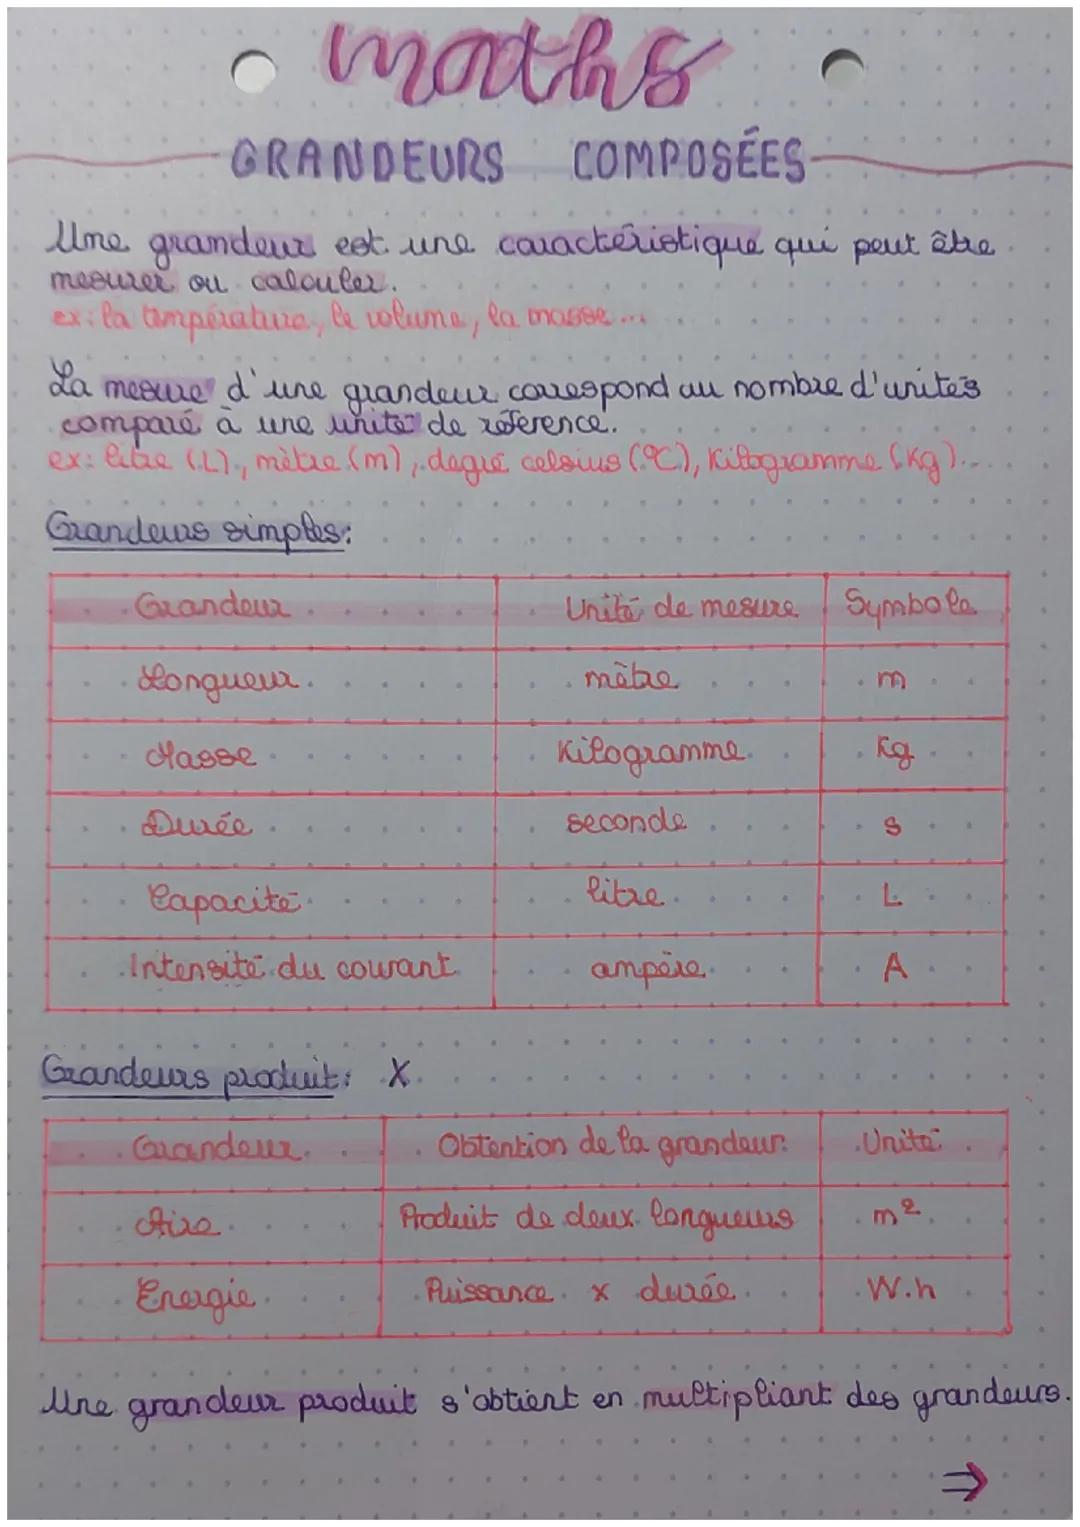 maths
GRANDEURS COMPOSÉES
Une grandeur est une caractéristique qui peut être
mesurer ou calculer.
ex: la température, le volume, la masse...
La mesure d'une grandeur correspond au nombre d'unités
comparé à une unité de référence.
ex: litre (L), mètre (m), degré celsius (°C), Kilogramme (Kg)...
Grandeurs simples:
Grandeur Unité de mesure Symbole
Longueur mètre m
Masse Kilogramme Kg
Durée seconde s
Capacité litre L
Intensité du courant ampère A
Grandeurs produit: X
Grandeur Obtention de la grandeur Unité
Aire Produit de deux longueurs m²
Energie Puissance x durée W.h
Une grandeur produit s'obtient en multipliant des grandeurs.
⇒